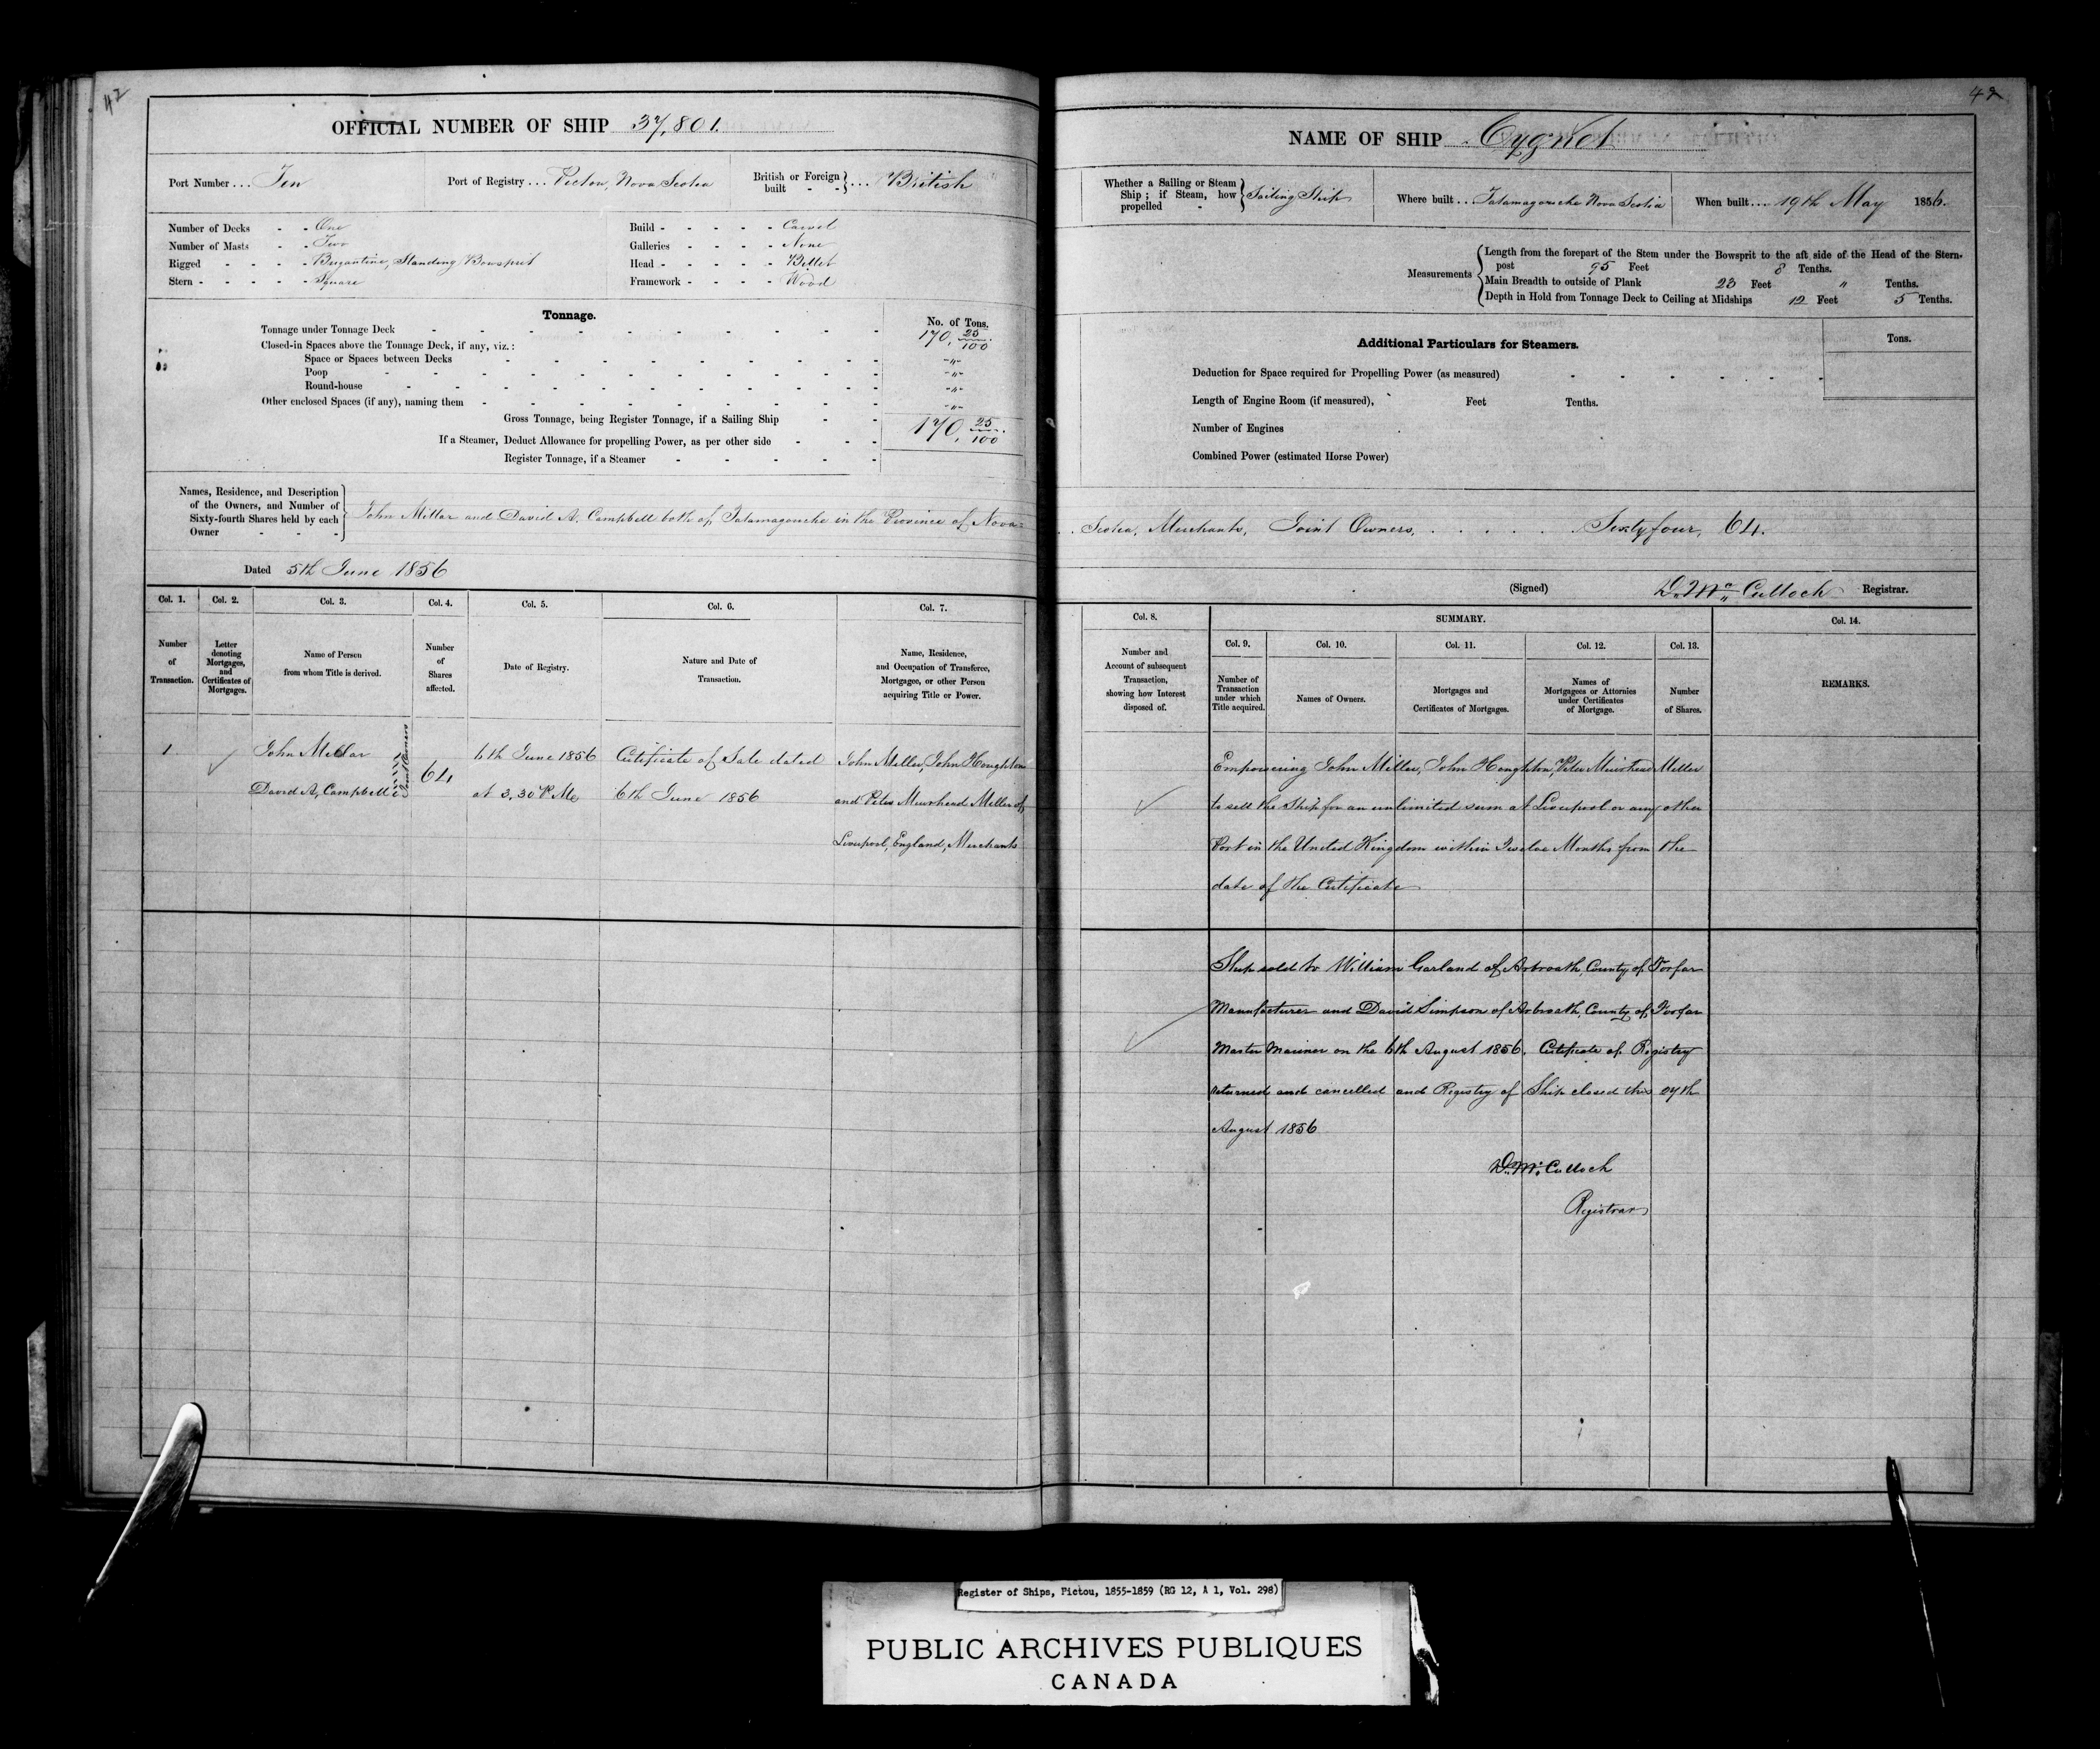 42
OFFICIAL NUMBER OF SHIP 37,801.
Port Number ... Ten
Port of Registry ... Pictou, Nova Scotia
British or Foreign built - - } ... British
Number of Decks - - One
Number of Masts - - Two
Rigged - - - - - Brigantine, Standing Bowsprit
Stern - - - - - Square
Build - - - - - Carvel
Galleries - - - - None
Head - - - - - Billet
Framework - - - - Wood
Tonnage.
No. of Tons.
Tonnage under Tonnage Deck 170, 25/100
Closed-in Spaces above the Tonnage Deck, if any, viz.:
Space or Spaces between Decks - " -
Poop - " -
Round-house - " -
Other enclosed Spaces (if any), naming them - " -
Gross Tonnage, being Register Tonnage, if a Sailing Ship 170, 25/100.
If a Steamer, Deduct Allowance for propelling Power, as per other side
Register Tonnage, if a Steamer
Names, Residence, and Description
of the Owners, and Number of
Sixty-fourth Shares held by each
Owner - - -
John Millar and David A. Campbell both of Tatamagouche in the Province of Nova=
Dated 5th June 1856
Col. 1. Col. 2. Col. 3. Col. 4. Col. 5. Col. 6. Col. 7.
Number of Transaction.
Letter denoting Mortgages, and Certificates of Mortgages.
Name of Person from whom Title is derived.
Number of Shares affected.
Date of Registry.
Nature and Date of Transaction.
Name, Residence, and Occupation of Transferee, Mortgagee, or other Person acquiring Title or Power.
1 John Millar Joint Owners 64 6th June 1856 Certificate of Sale dated John Miller, John Houghton
David A, Campbell at 3.30 P.M. 6th June 1856 and Peter Muirhead Miller of
Liverpool, England, Merchants
42
NAME OF SHIP Cygnet
Whether a Sailing or Steam Ship; if Steam, how propelled - } Sailing Ship
Where built .. Tatamagouche Nova Scotia
When built ... 19th May 1856.
Measurements
Length from the forepart of the Stem under the Bowsprit to the aft side of the Head of the Stern-
post 95 Feet 8 Tenths.
Main Breadth to outside of Plank 23 Feet " Tenths.
Depth in Hold from Tonnage Deck to Ceiling at Midships 12 Feet 5 Tenths.
Additional Particulars for Steamers.
Tons.
Deduction for Space required for Propelling Power (as measured)
Length of Engine Room (if measured), Feet Tenths.
Number of Engines
Combined Power (estimated Horse Power)
Scotia, Merchants, Joint Owners, . . . . . . Sixty four, 64.
(Signed) D. Mc Culloch Registrar.
Col. 8. SUMMARY. Col. 14.
Col. 9. Col. 10. Col. 11. Col. 12. Col. 13.
Number and Account of subsequent Transaction, showing how Interest disposed of.
Number of Transaction under which Title acquired.
Names of Owners.
Mortgages and Certificates of Mortgages.
Names of Mortgagees or Attornies under Certificates of Mortgage.
Number of Shares.
REMARKS.
Empowering John Miller, John Houghton, Peter Muirhead Miller
to sell the Ship for an unlimited sum at Liverpool or any other
Port in the United Kingdom within Twelve Months from the
date of the Certificate
Ship sold to William Garland of Arbroath, County of Forfar
Manufacturer and David Simpson of Arbroath, County of Forfar
Master Mariner on the 6th August 1856. Certificate of Registry
returned and cancelled and Registry of Ship closed this
August 1856
D. Mc Culloch
Registrar
Register of Ships, Pictou, 1855-1859 (RG 12, A 1, Vol. 298)
PUBLIC ARCHIVES PUBLIQUES
CANADA